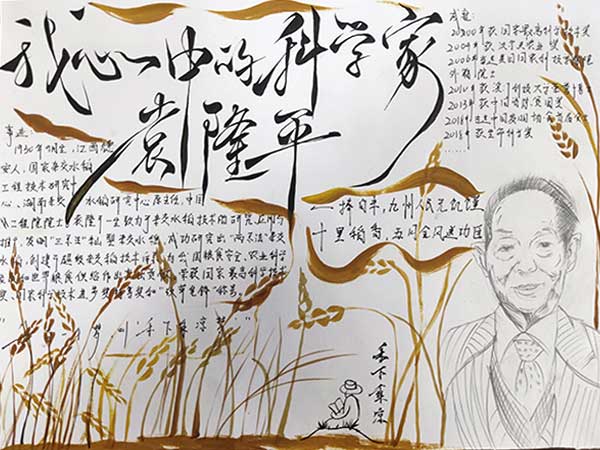 我心中的科学家
袁隆平
成就:
2000年获国家最高科学技术奖
2004年获沃尔夫农业奖
2006年当选美国国家科学院
外籍院士
2010年获
2013年获中国消除贫困奖
2016
2018年获未来科学奖
……
事迹:
1930年9月生,江西德
安人,国家杂交水稻
工程技术研究中
心、湖南杂交水稻研究中心原主任,中国
工程院院士。袁隆平一生致力于杂交水稻技术的研究、应用与
推广,发明“三系法”籼型杂交水稻,成功研究出“两系法”杂交
水稻,创建了超级杂交稻技术体系,为我国粮食安全、农业科学
发展和世界粮食供给作出杰出贡献。荣获国家最高科学技术
奖、国家科学技术进步奖特等奖和“改革先锋”称号。
梦叫‘禾下乘凉梦’”
九州人民免饥馑
十里稻香,
禾下乘凉